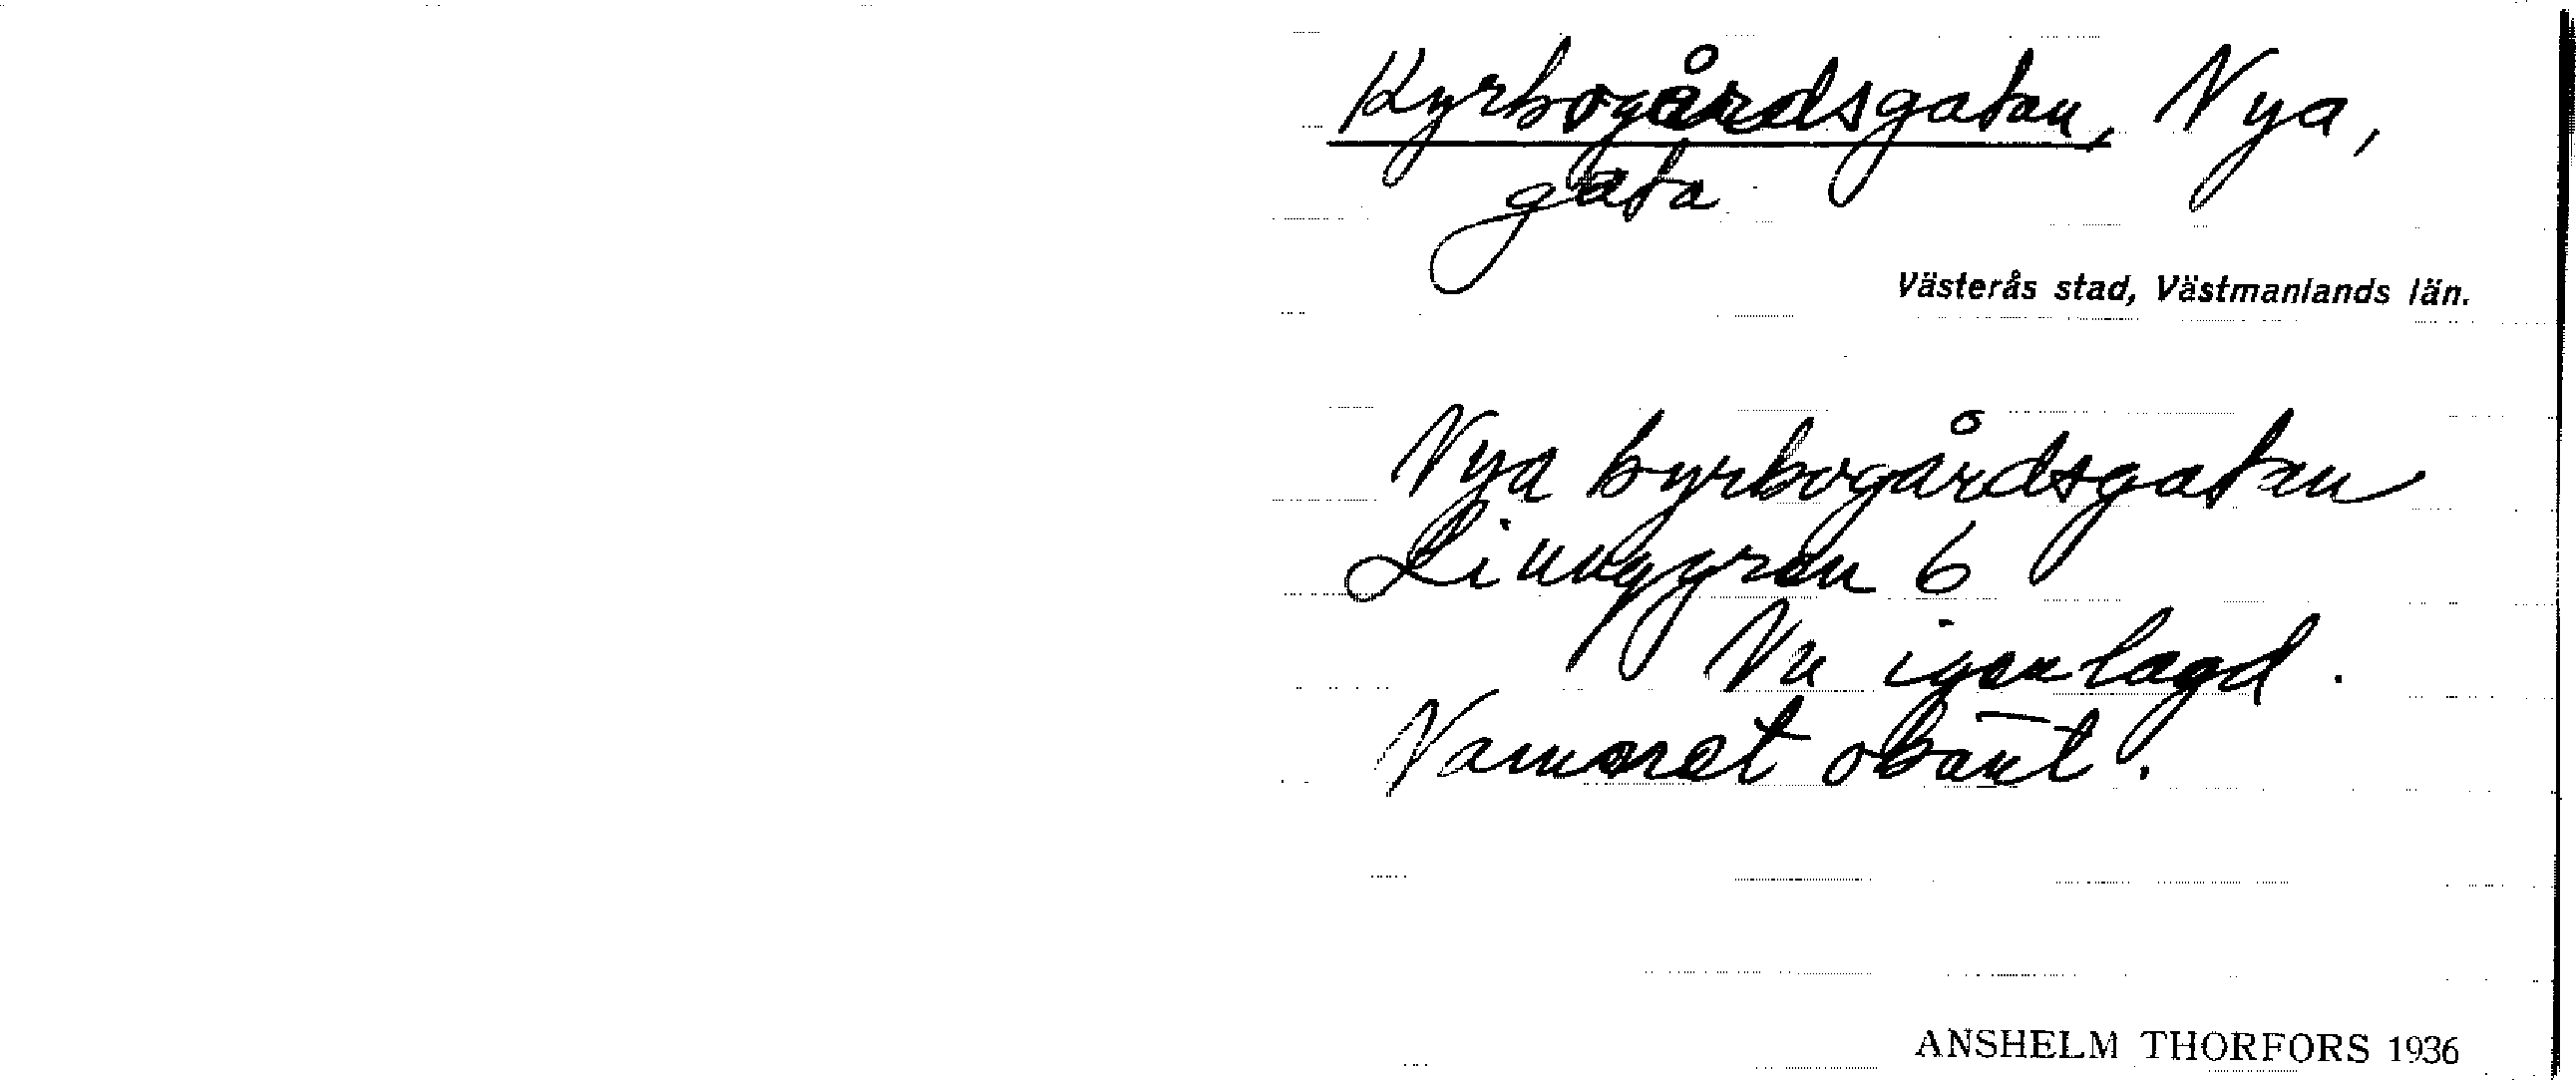 Kyrbogårdsgatan, Nya,
gata
Västerås stad, Västmanlands län.
Nya kyrbogårdsgatan
Ljunggren 6
Nu igenlagd.
Namnet okänt.
ANSHELM THORFORS 1936